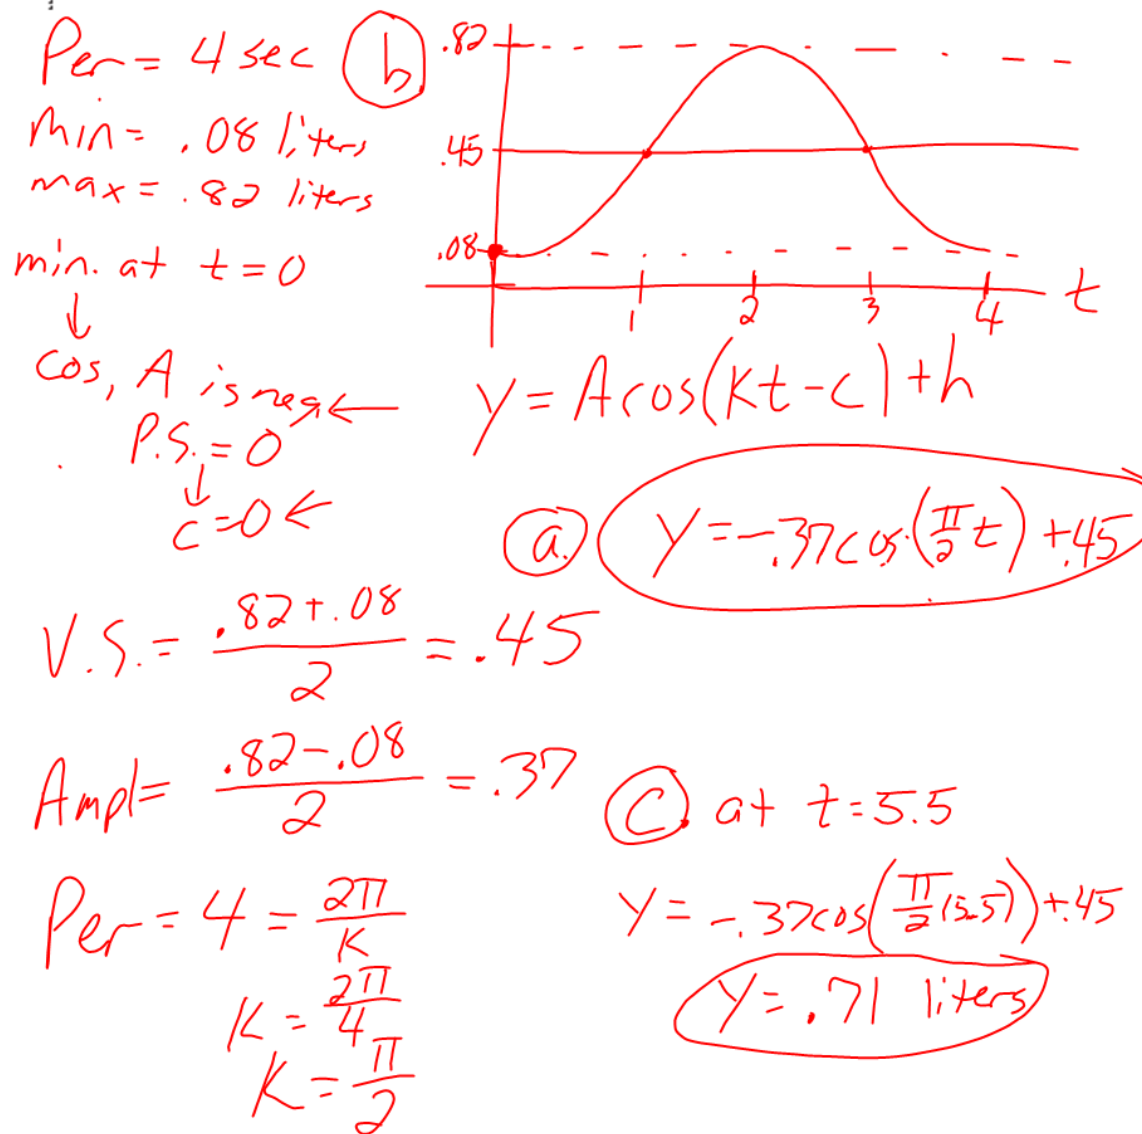 Per = 4 sec
min = .08 liters
max = .82 liters
min. at t = 0
↓
cos, A is neg ←
P.S. = 0
↓
c = 0 ←
V.S. = (.82 + .08)/2 = .45
Ampl = (.82 - .08)/2 = .37
Per = 4 = 2π/K
K = 2π/4
K = π/2
b
.82
.45
.08
1 2 3 4 t
y = A cos(Kt - c) + h
a. y = -.37 cos(π/2 t) + .45
c. at t = 5.5
y = -.37 cos(π/2 (5.5)) + .45
y = .71 liters